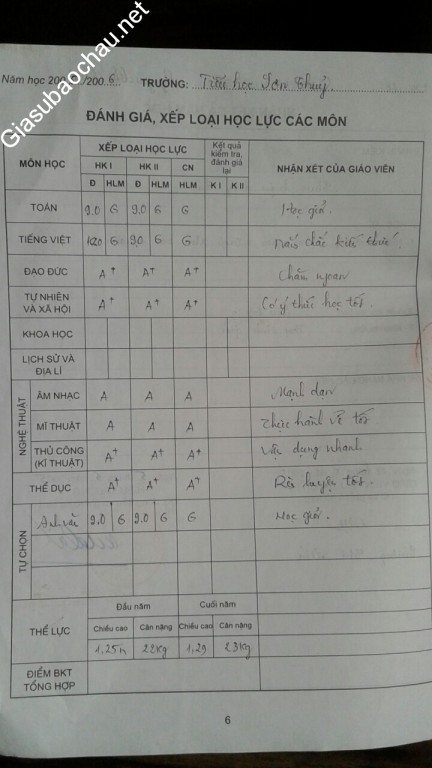 Giasubaochau.net
Năm học 200 /2006 TRƯỜNG: Tiểu học Sơn Thuỷ
ĐÁNH GIÁ, XẾP LOẠI HỌC LỰC CÁC MÔN
MÔN HỌC XẾP LOẠI HỌC LỰC Kết quả kiểm tra, đánh giá lại NHẬN XÉT CỦA GIÁO VIÊN
HK I HK II CN
Đ HLM Đ HLM HLM K I K II
TOÁN 9.0 G 9.0 G G Học giỏi.
TIẾNG VIỆT 10.0 G 9.0 G G nắm chắc kiến thức
ĐẠO ĐỨC A+ A+ A+ Chăm ngoan
TỰ NHIÊN VÀ XÃ HỘI A+ A+ A+ Có ý thức học tốt.
KHOA HỌC
LỊCH SỬ VÀ ĐỊA LÍ
NGHỆ THUẬT
ÂM NHẠC A A A Mạnh dạn
MĨ THUẬT A A A Thực hành vẽ tốt
THỦ CÔNG (KĨ THUẬT) A+ A+ A+ Vận dụng nhanh
THỂ DỤC A+ A+ A+ Rèn luyện tốt.
TỰ CHỌN
Anh văn 9.0 G 9.0 G G Học giỏi.
THỂ LỰC Đầu năm Cuối năm
Chiều cao Cân nặng Chiều cao Cân nặng
1,25m 22kg 1,29 23kg
ĐIỂM BKT TỔNG HỢP
6